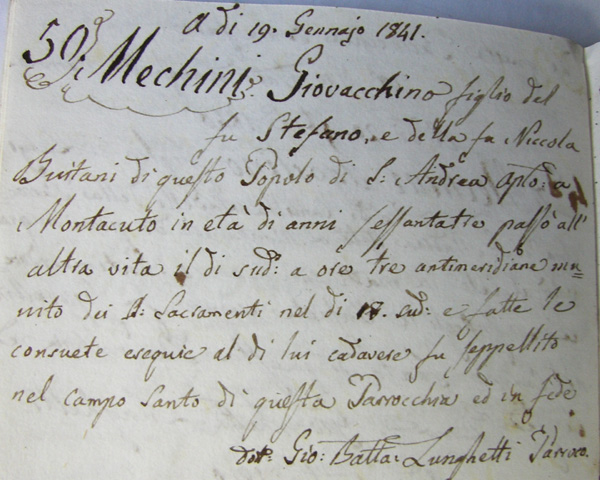 A di 19. Gennajo 1841.
50. Mechini Giovacchino figlio del
fu Stefano, e della fu Niccola
Buitani di questo Popolo di S: Andrea Aplo: a
Montacuto in età di anni sessantatre passò all'
altra vita il di sud: a ore tre antimeridiane mu=
nito dei S: Sacramenti nel di 18. sud: e fatte le
consuete esequie al di lui cadavere fu seppellito
nel campo santo di questa Parrocchia ed in fede
Gio: Batta: Lunghetti Parroco.